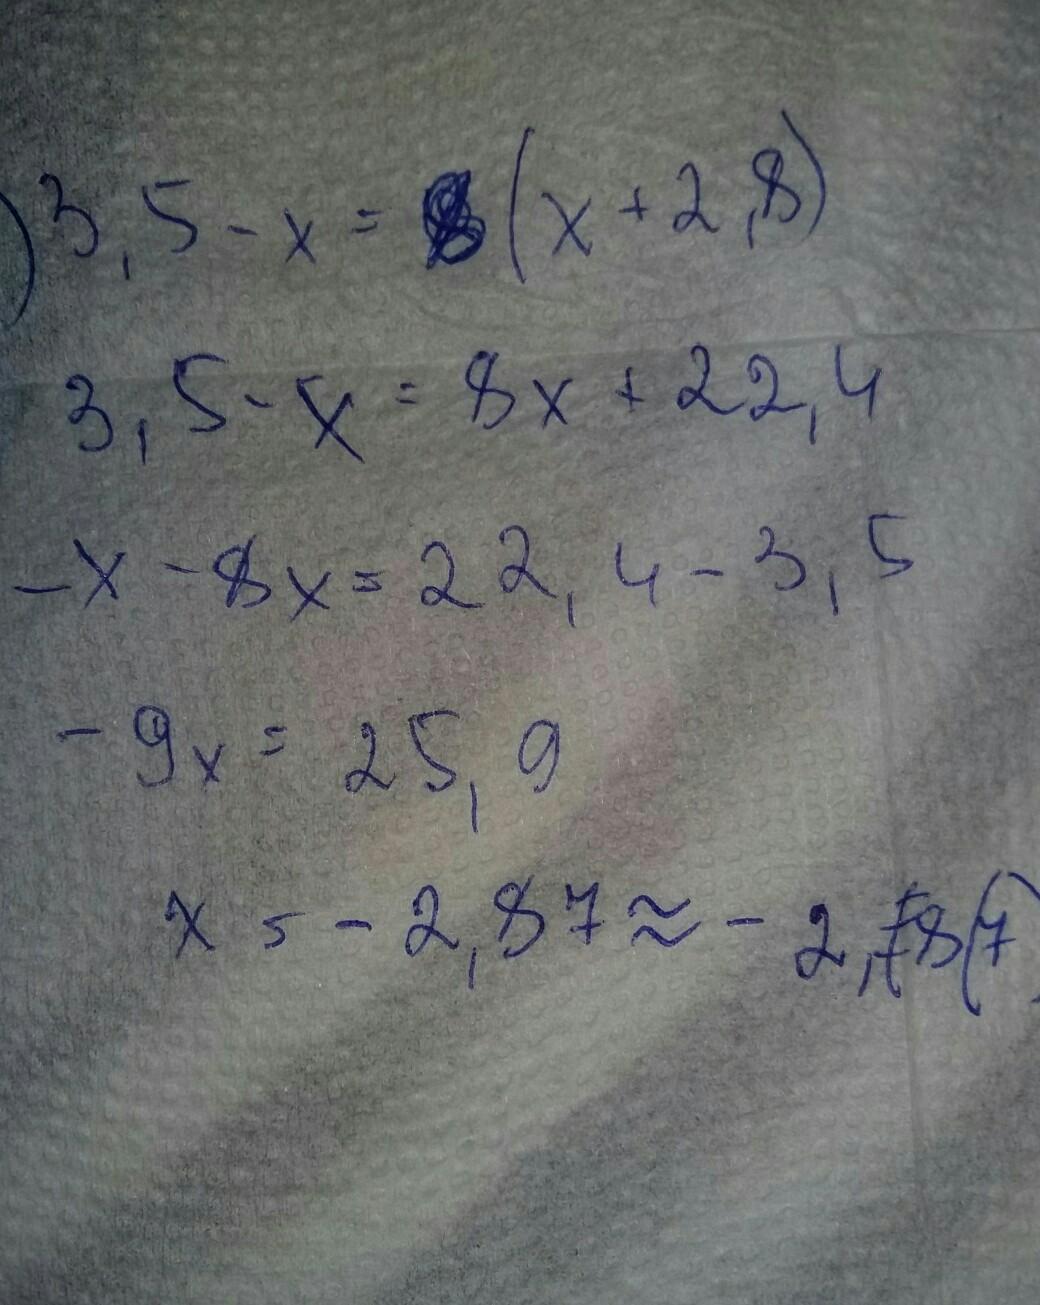 ) 3,5 - x = 8 (x + 2,8)
3,5 - x = 8x + 22,4
-x - 8x = 22,4 - 3,5
- 9x = 25,9
x = - 2,87 ≈ - 2,8(7)